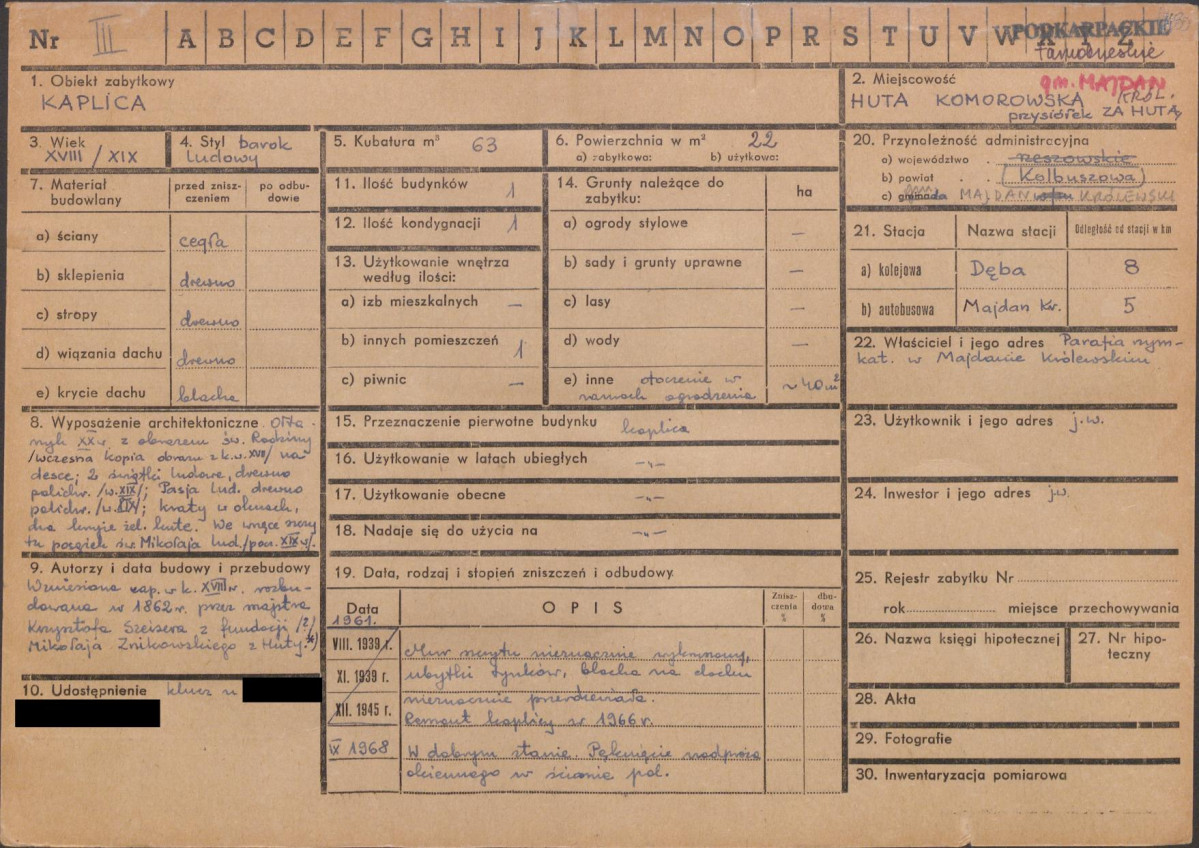 Nr III A B C D E F G H I J K L M N O P R S T U V W X Y Z
PODKARPACKIE
tarnobrzeskie
1. Obiekt zabytkowy
KAPLICA
2. Miejscowość gm. MAJDAN KRÓL.
HUTA KOMOROWSKA
przysiółek ZA HUTĄ
3. Wiek
XVIII / XIX
4. Styl barok
ludowy
5. Kubatura m³ 63
6. Powierzchnia w m² 22
a) zabytkowa: b) użytkowa:
7. Materiał budowlany
przed zniszczeniem
po odbudowie
a) ściany cegła
b) sklepienia drewno
c) stropy drewno
d) wiązania dachu drewno
e) krycie dachu blacha
8. Wyposażenie architektoniczne Ołta-
rzyk XX w z obrazem św. Rodziny
/wczesna kopia obrazu z k.w. XVII/ na
desce; 2 świątki ludowe, drewno
polichr. /w. XIX/; Pasja lud. drewno
polichr. /w. XIX/; kraty w oknach,
dwa krzyże żel. kute. We wnęce szczy
tu posążek św. Mikołaja lud. /pocz. XIX w/.
9. Autorzy i data budowy i przebudowy
Wzniesiona zap. w k. XVIII w. rozbu-
dowana w 1862 r. przez majstra
Krzysztofa Szeisera z fundacji /?/
Mikołaja Znikowskiego z Huty. *)
10. Udostępnienie klucz u
11. Ilość budynków 1
12. Ilość kondygnacji 1
13. Użytkowanie wnętrza
według ilości:
a) izb mieszkalnych —
b) innych pomieszczeń 1
c) piwnic —
14. Grunty należące do
zabytku: ha
a) ogrody stylowe —
b) sady i grunty uprawne —
c) lasy —
d) wody —
e) inne otoczenie w
ramach ogrodzenia ~ 40 m²
15. Przeznaczenie pierwotne budynku kaplica
16. Użytkowanie w latach ubiegłych -„-
17. Użytkowanie obecne -„-
18. Nadaje się do użycia na -„-
19. Data, rodzaj i stopień zniszczeń i odbudowy
Data OPIS Zniszczenia % dbudowa %
1961.
VIII. 1939 r. Mur szczytu nieznacznie wykruszony,
XI. 1939 r. ubytki tynków, blacha na dachu
XII. 1945 r. nieznacznie przerdzewiała.
Remont kaplicy w 1966 r.
IX 1968 W dobrym stanie. Pęknięcie nadproża
okiennego w ścianie poł.
20. Przynależność administracyjna
a) województwo rzeszowskie
b) powiat (Kolbuszowa)
c) MAJDAN KRÓLEWSKI
21. Stacja Nazwa stacji Odległość od stacji w km
a) kolejowa Dęba 8
b) autobusowa Majdan Kr. 5
22. Właściciel i jego adres Parafia rzym-
kat. w Majdanie Królewskim
23. Użytkownik i jego adres j.w.
24. Inwestor i jego adres jw.
25. Rejestr zabytku Nr
rok miejsce przechowywania
26. Nazwa księgi hipotecznej
27. Nr hipo-
teczny
28. Akta
29. Fotografie
30. Inwentaryzacja pomiarowa